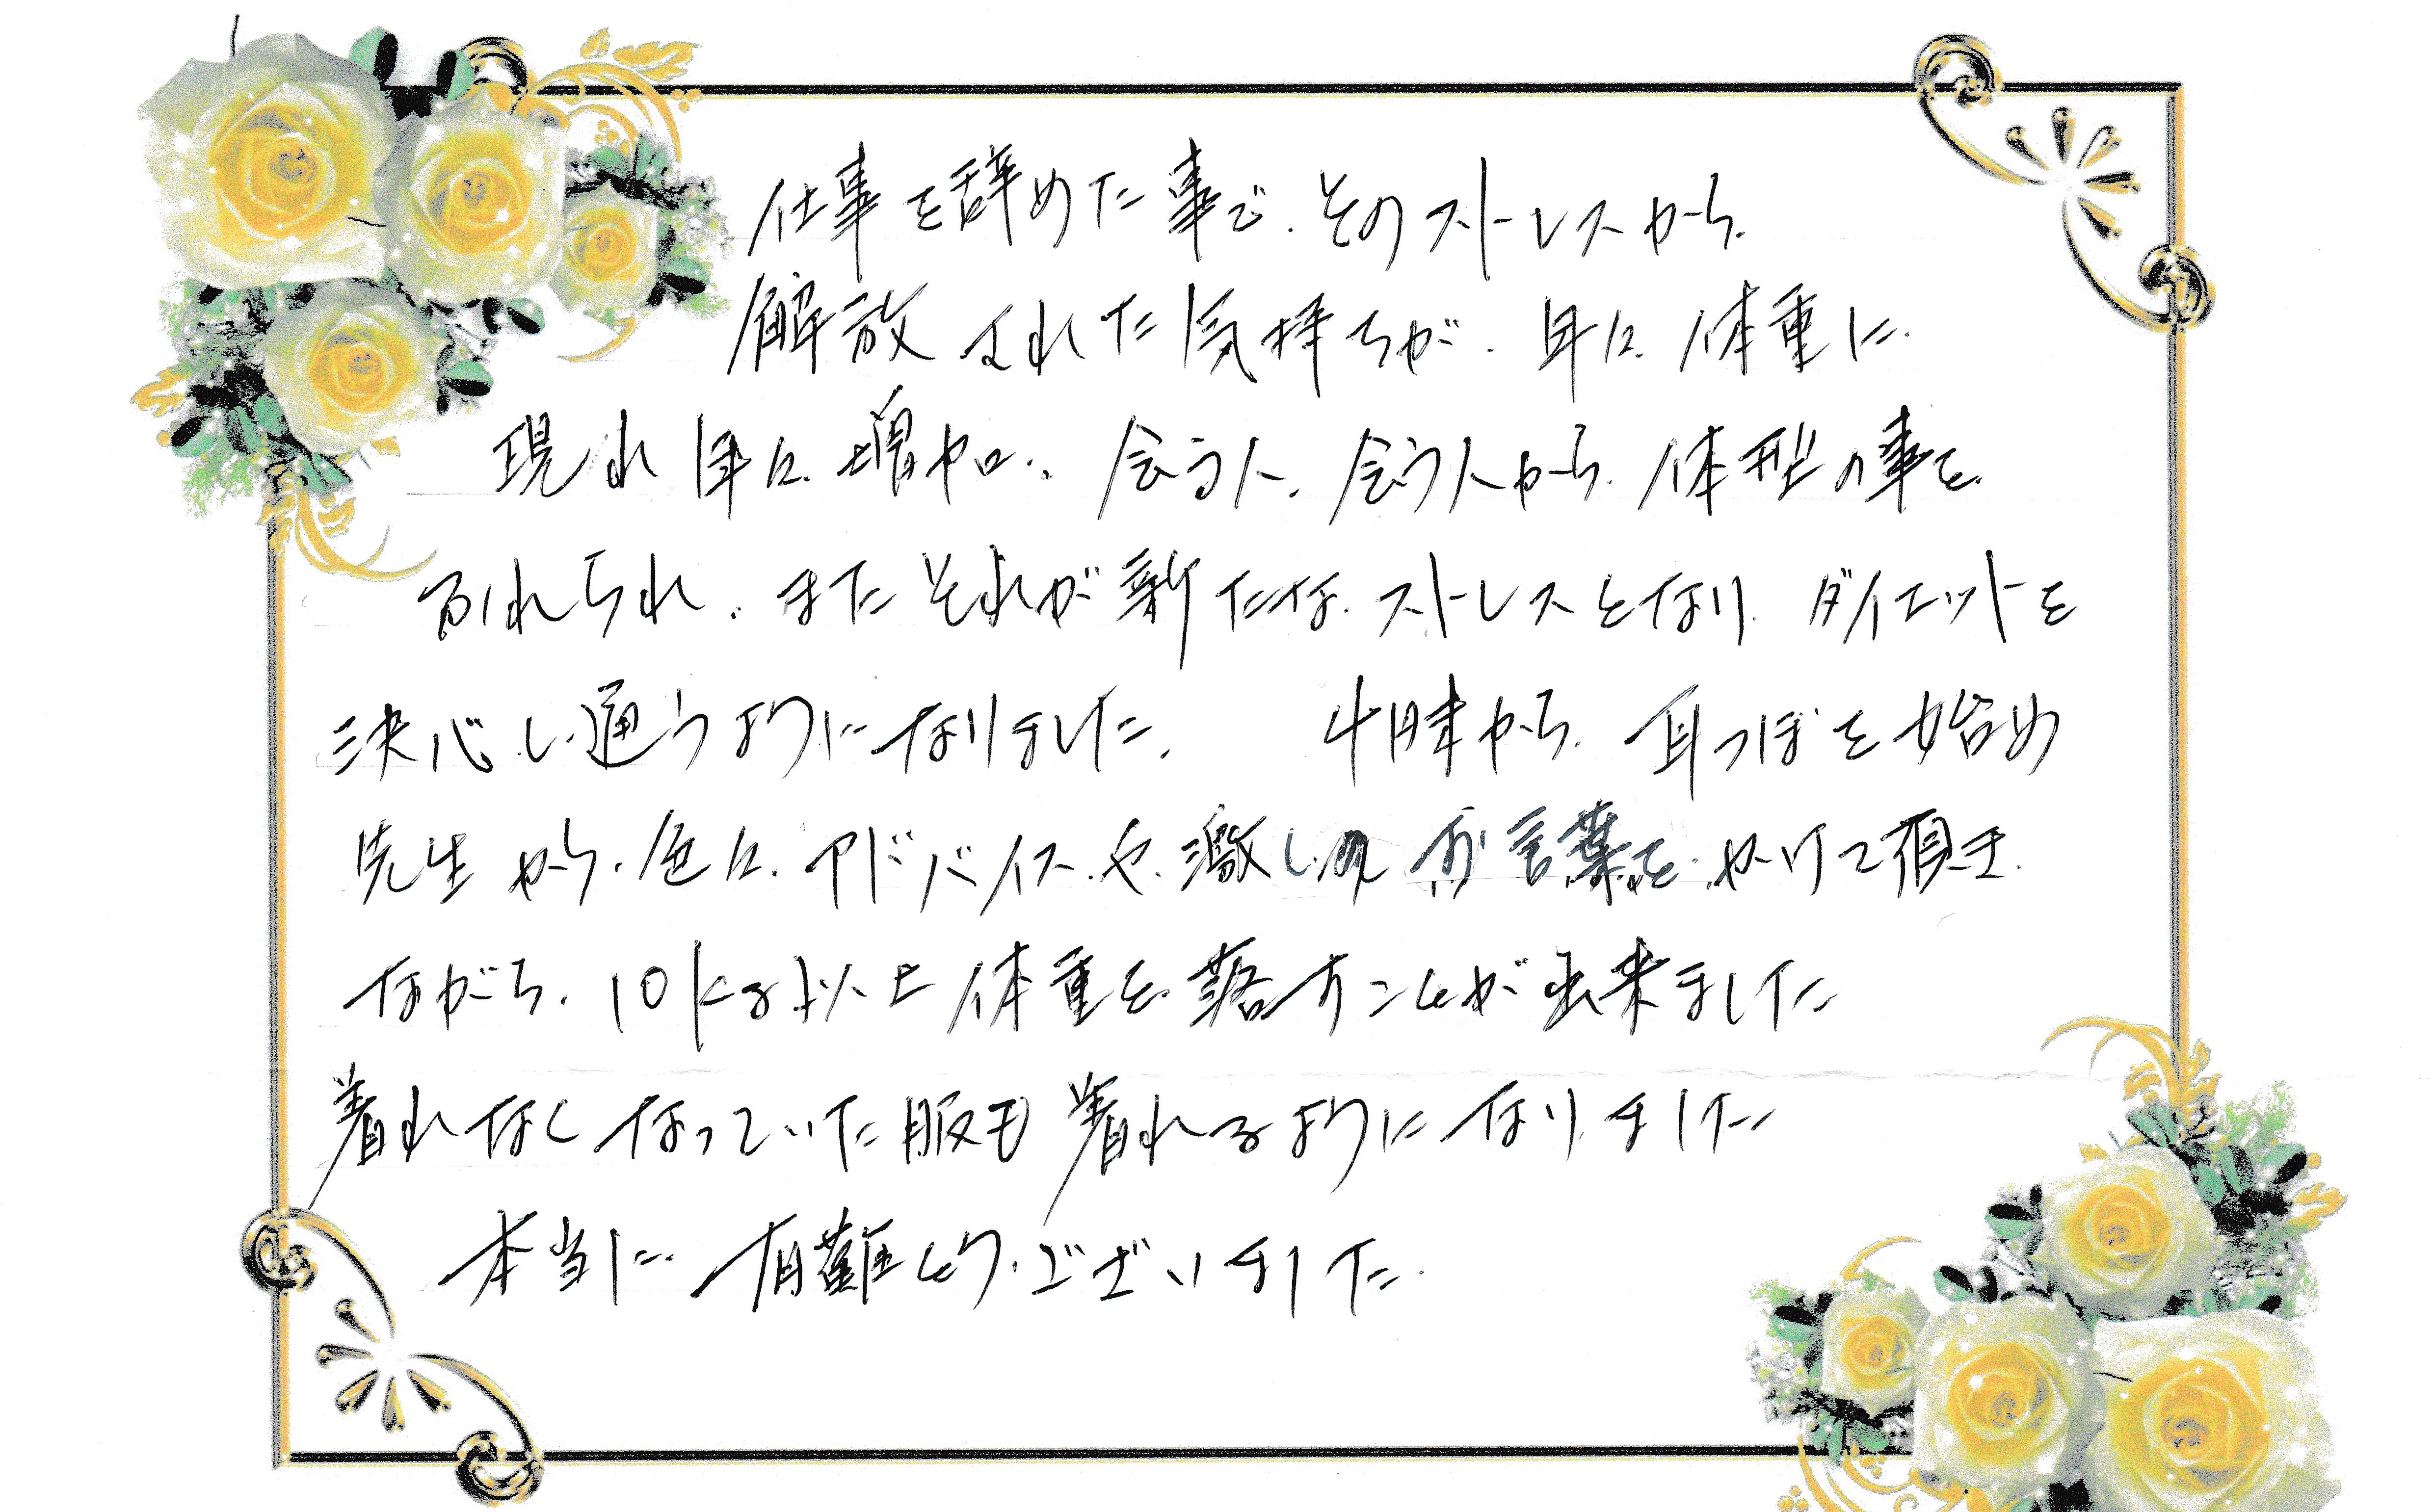 仕事を辞めた事で、そのストレスから
解放された気持ちが、年々体重に
現れ年々増加、会う人、会う人から体型の事を
ふれられ、またそれが新たなストレスとなり、ダイエットを
決心し通うようになりました。4月末から、耳つぼを始め
先生から、色々アドバイスや激しの お言葉を、かけて頂き
ながら、10kg以上体重を落すことが出来ました
着れなくなっていた服も着れるようになりました
本当に有難とうございました。